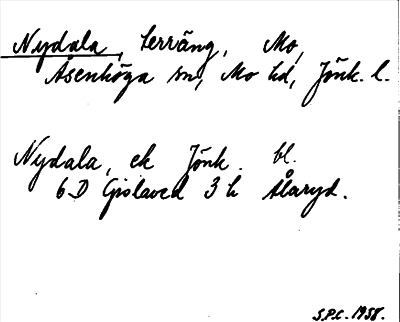 Nydala, terräng, Mo,
Åsenhöga sn, Mo hd, Jönk. l.
Nydala, ek Jönk. bl.
6D Gislaved 3h Ålaryd.
S.P.C. 1958.